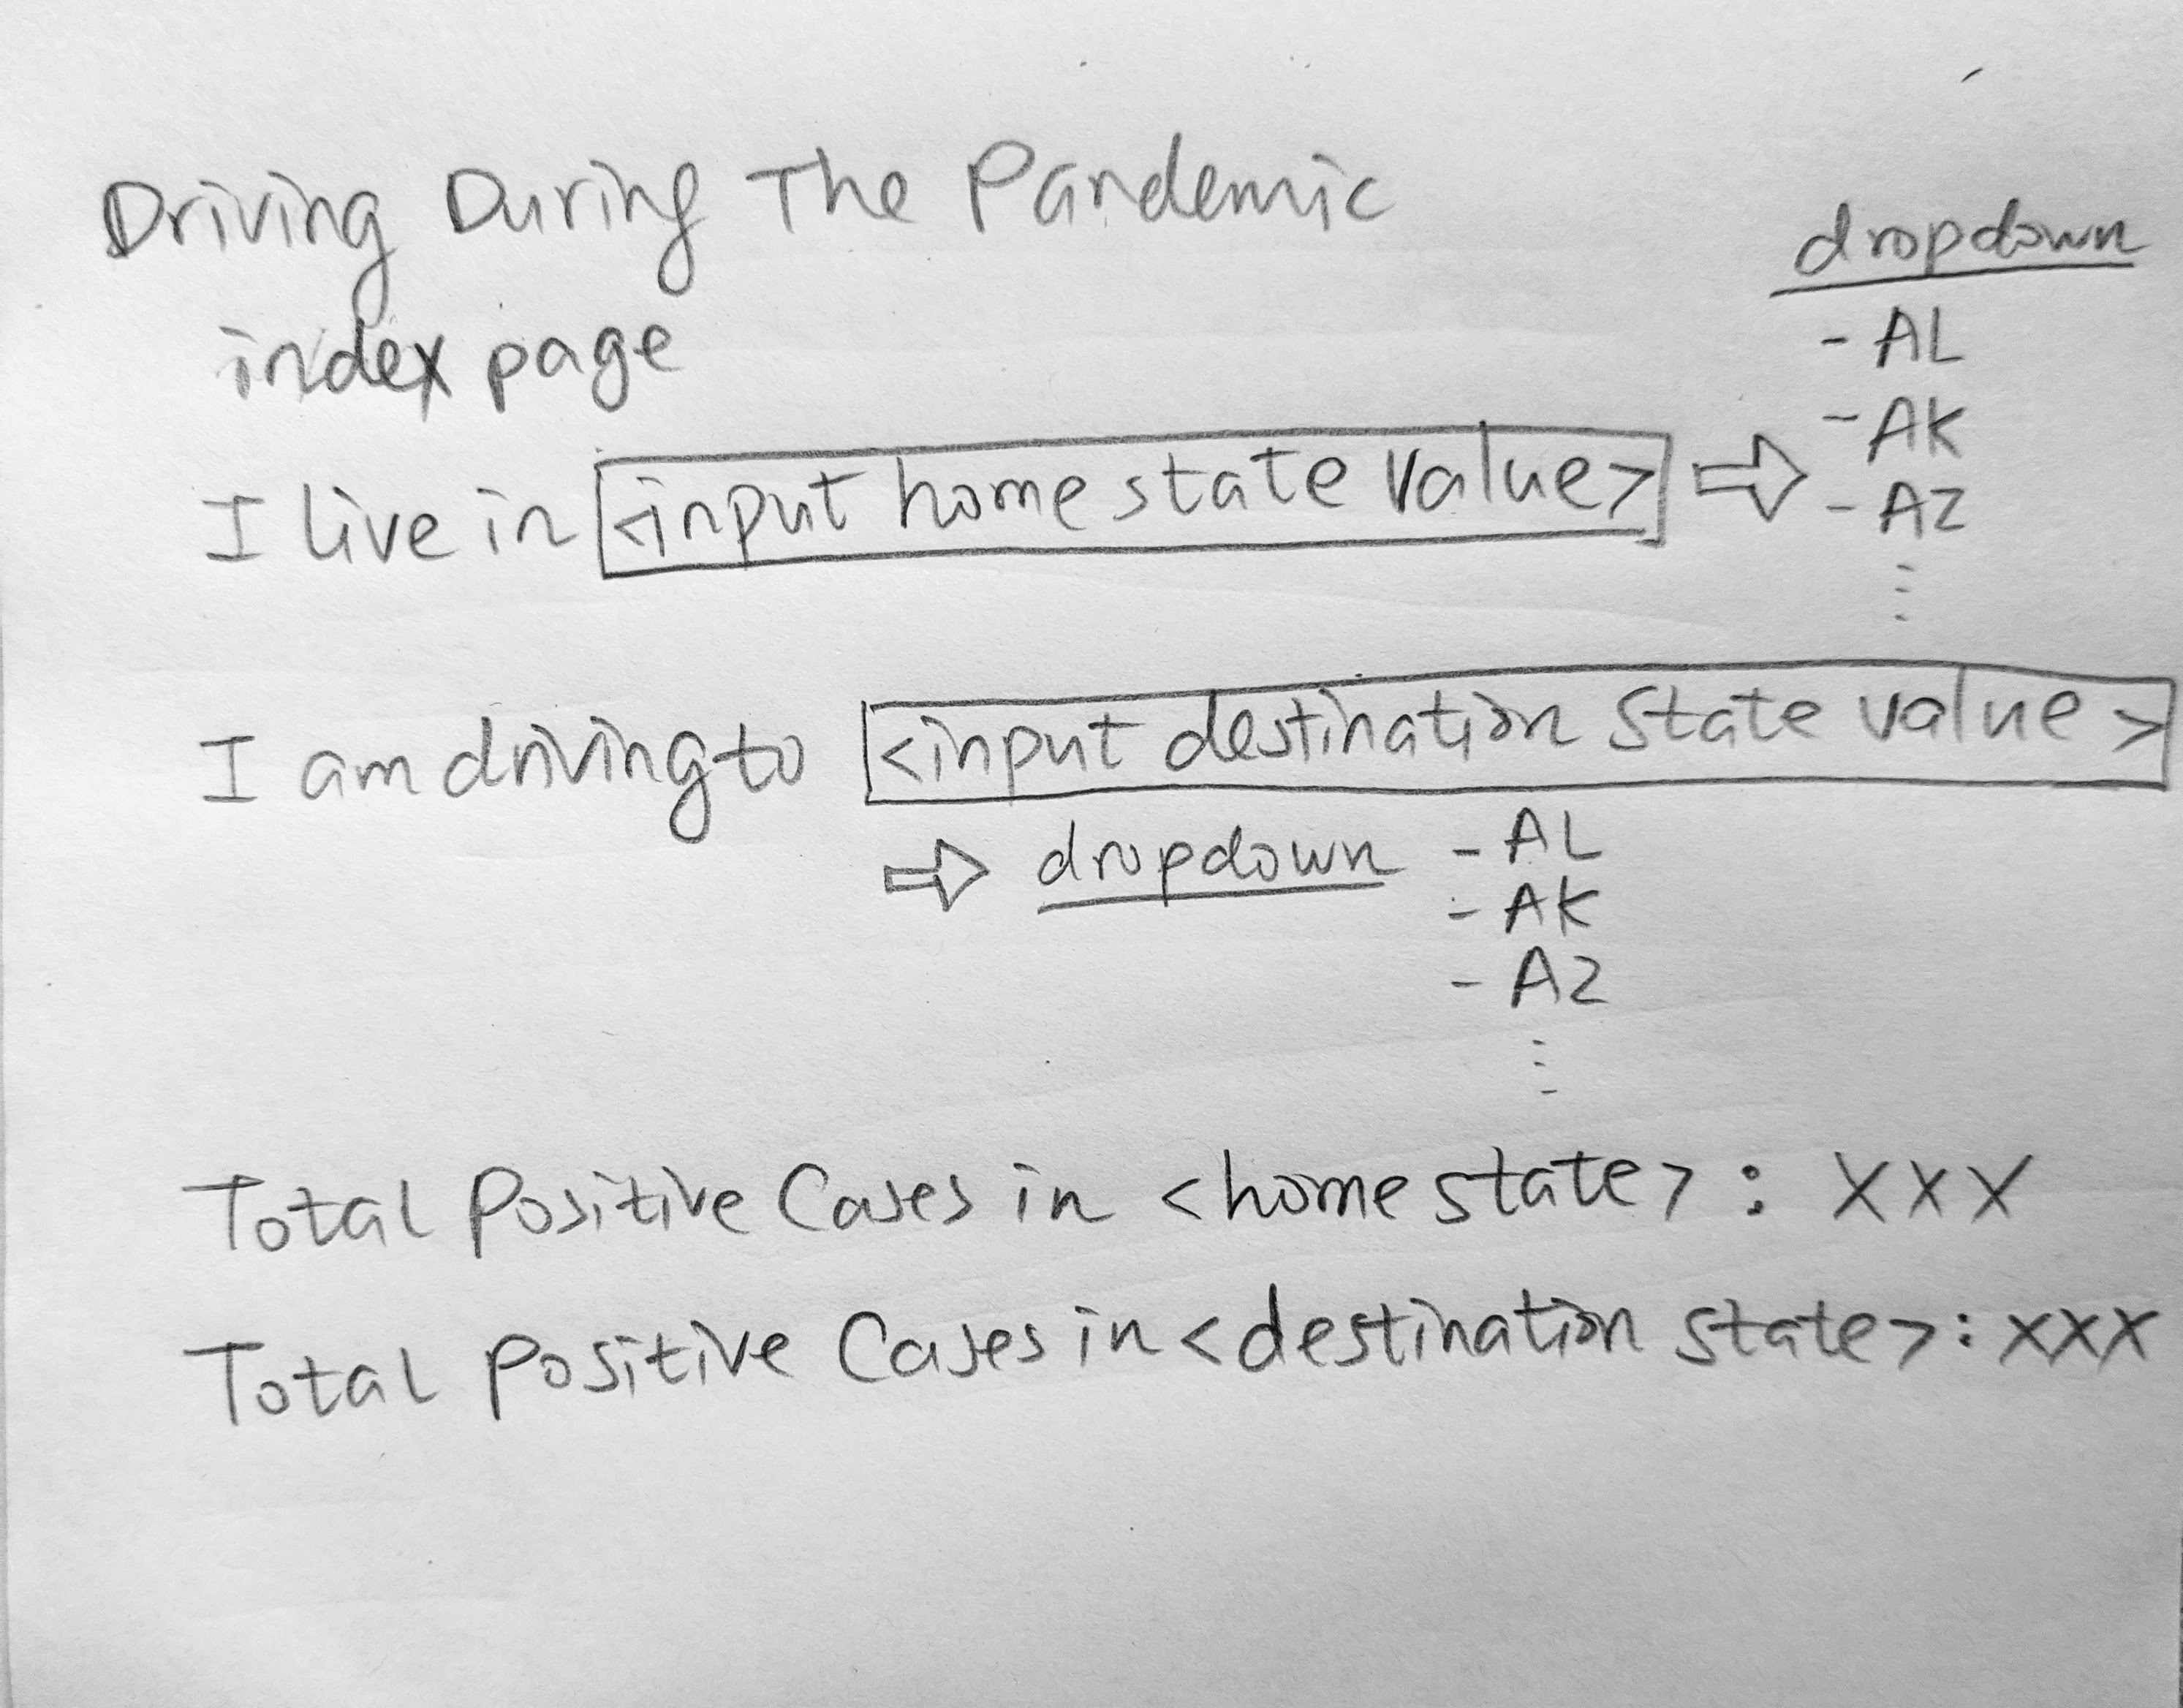 Driving During The Pandemic
index page
I live in <input home state value> ⇨
dropdown
- AL
- AK
- AZ
⋮
I am driving to <input destination state value>
⇨ dropdown - AL
- AK
- AZ
⋮
Total Positive Cases in <home state> : XXX
Total Positive Cases in <destination state> : XXX